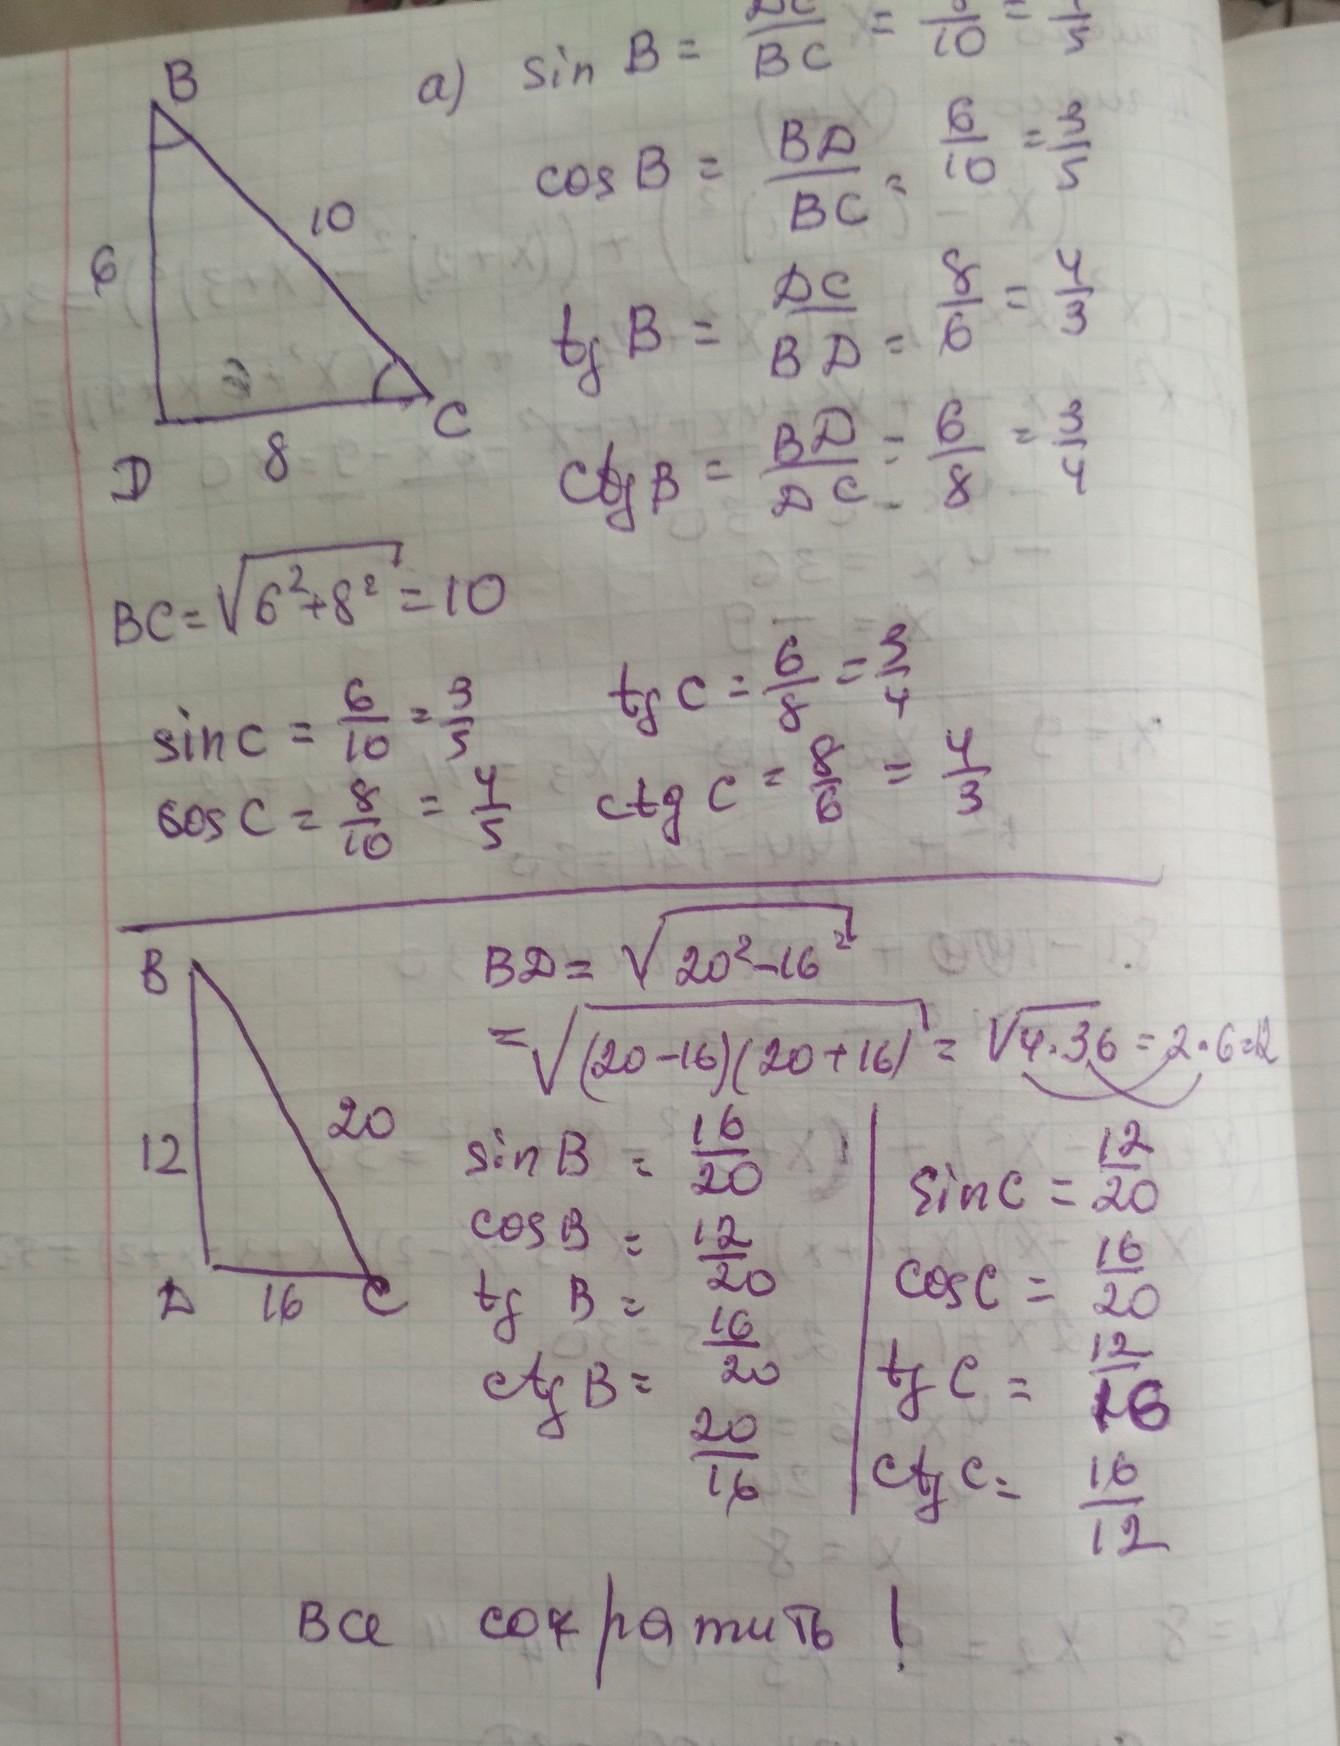 B
a) sin B = DC/BC = 8/10 = 4/5
cos B = BD/BC = 6/10 = 3/5
10
6
tg B = DC/BD = 8/6 = 4/3
C
D
8
ctg B = BD/DC = 6/8 = 3/4
BC = √6²+8² = 10
sin C = 6/10 = 3/5
tg C = 6/8 = 3/4
cos C = 8/10 = 4/5
ctg C = 8/6 = 4/3
B
BD = √20²-16²
= √(20-16)(20+16) = √4·36 = 2·6=12
20
12
D
16
C
sin B = 16/20
cos B = 12/20
tg B = 16/20
ctg B = 20/16
sin C = 12/20
cos C = 16/20
tg C = 12/16
ctg C = 16/12
Все сократить !